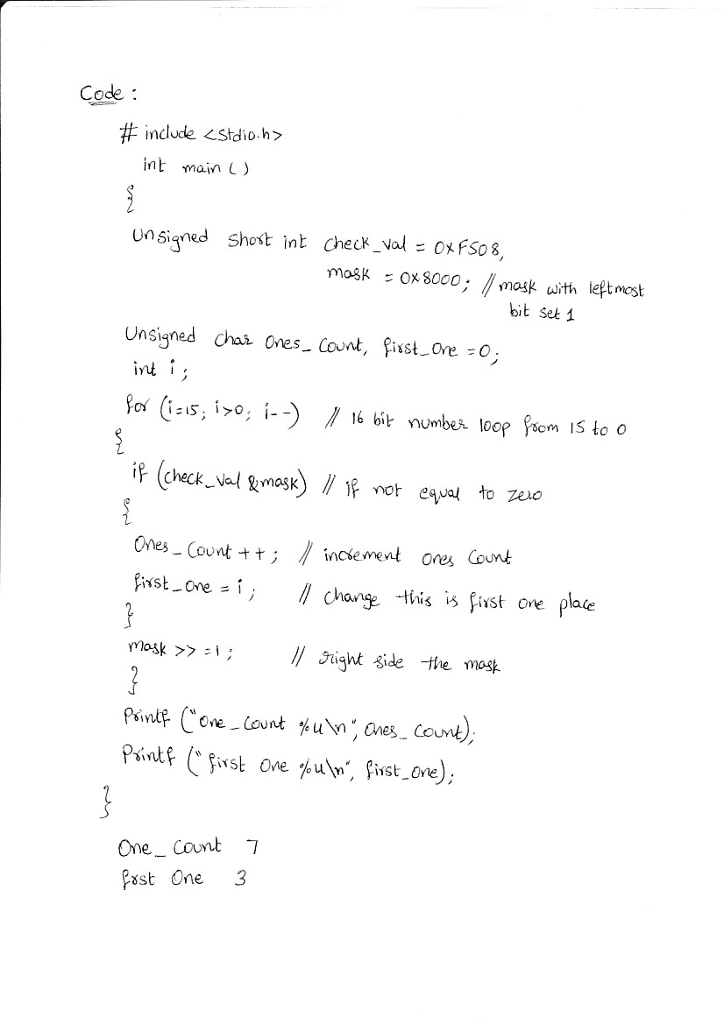 Code :
# include <stdio.h>
int main ( )
{
Unsigned short int check_val = 0xF508,
mask = 0x8000; // mask with leftmost
bit set 1
Unsigned char Ones_Count, first_One = 0;
int i ;
for (i=15; i>0; i--) // 16 bit number loop from 15 to 0
{
if (check_val & mask) // if not equal to zero
{
Ones_Count ++ ; // increment ones Count
first_one = i ; // change this is first one place
}
mask >> =1 ; // right side the mask
}
Printf ("One_Count %u\n", Ones_Count);
Printf ("first One %u\n", first_one);
}
One_Count 7
frst One 3